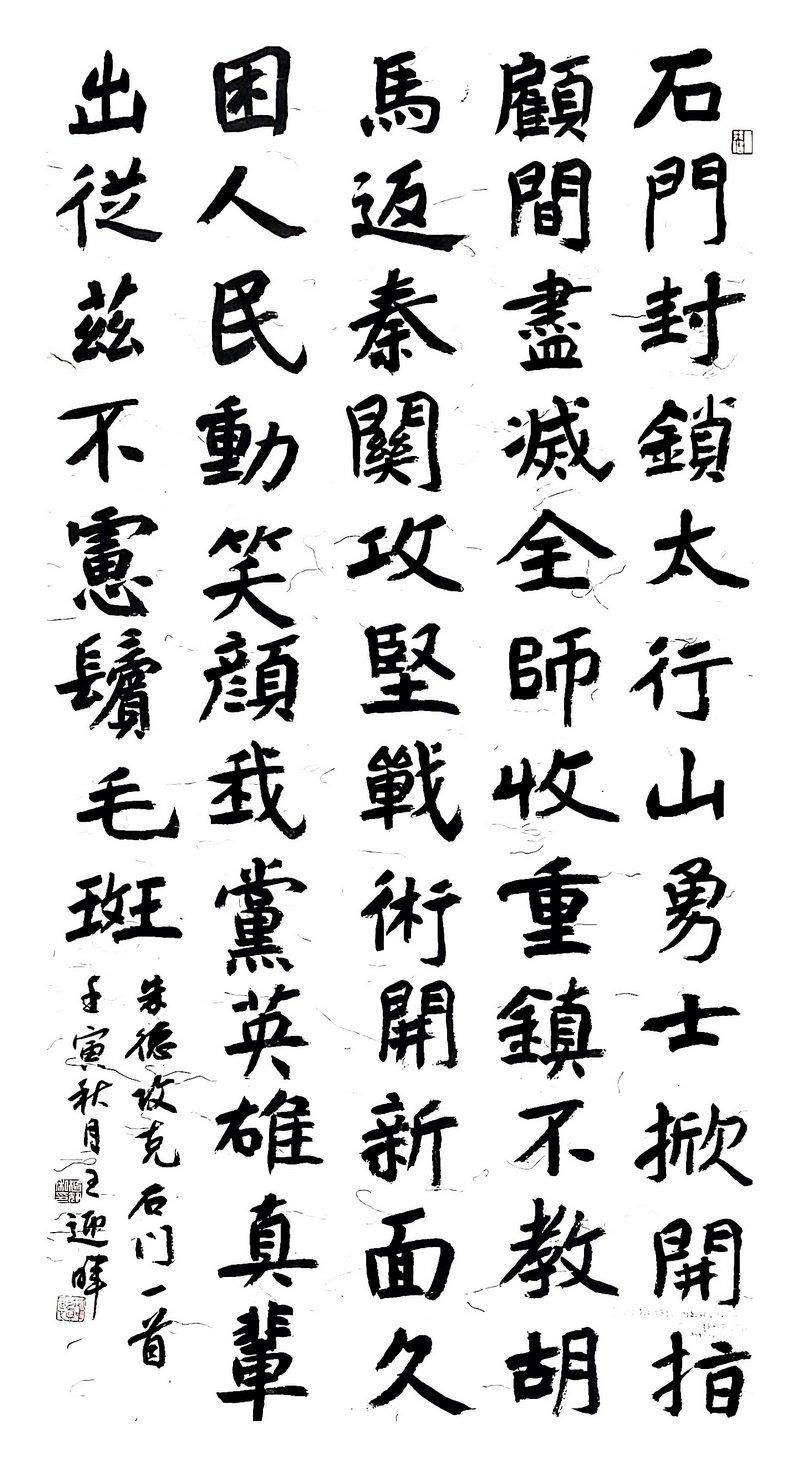 石門封鎖太行山勇士掀開指
顧間盡滅全師收重鎮不教胡
馬返秦關攻堅戰術開新面久
困人民動笑顏我黨英雄真輩
出從茲不慮鬢毛斑
朱德攻克石门一首
壬寅秋月王迎晖